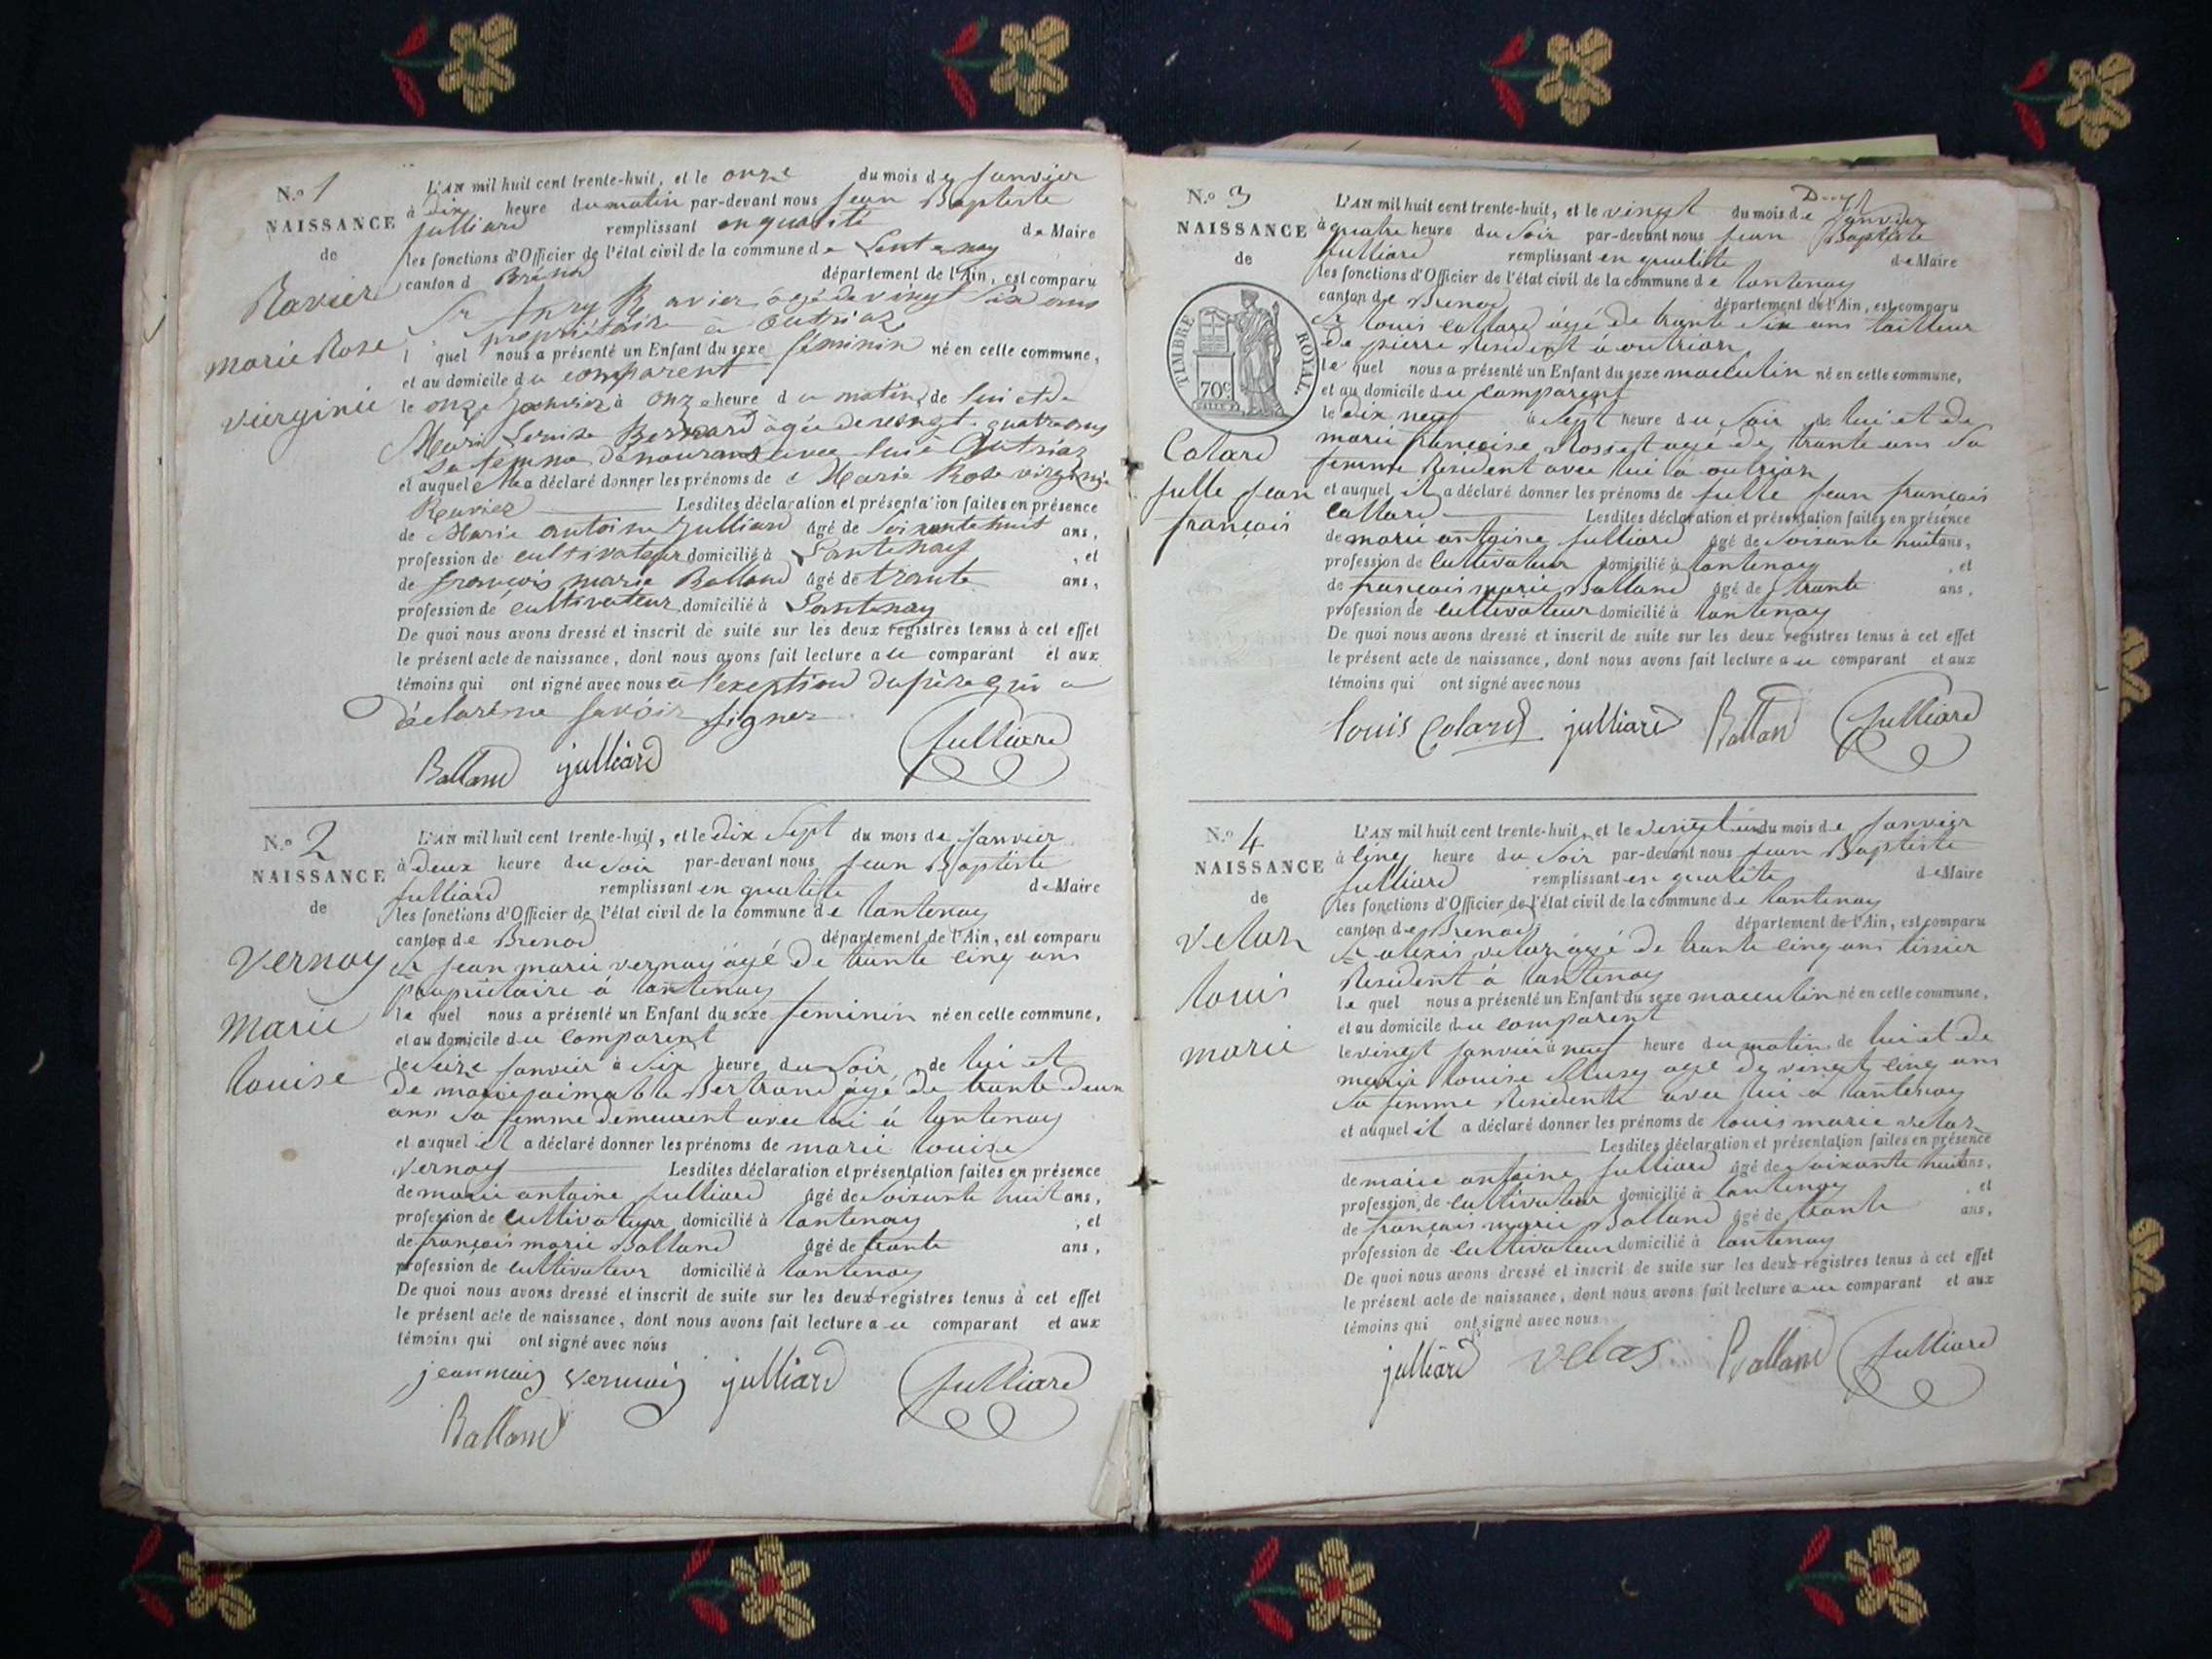 N.o 1
NAISSANCE
de
Ravier
marie Rose
virginie
L'AN mil huit cent trente-huit, et le onze du mois de Janvier
à dix heure du matin par-devant nous Jean Baptiste
Julliard remplissant en qualité de Maire
les fonctions d'Officier de l'état civil de la commune de Lentenay
canton d Brénod département de l'Ain, est comparu
Sr Ravier âgé de vingt six ans
propriétaire à Outriaz
l quel nous a présenté un Enfant du sexe féminin né en cette commune,
et au domicile du comparent
le onze Janvier à onze heure du matin, de lui et de
Marie Louise Bernard âgée de vingt quatre ans
sa femme demourans avec lui à Outriaz
et auquel a déclaré donner les prénoms de Marie Rose virginie
Ravier Lesdites déclaration et présentation faites en présence
de Marie antoine Julliard âgé de soixante huit ans,
profession de cultivateur domicilié à Lantenay , et
de françois marie Balland âgé de trante ans,
profession de cultivateur domicilié à Lantenay
De quoi nous avons dressé et inscrit de suite sur les deux registres tenus à cet effet
le présent acte de naissance, dont nous avons fait lecture au comparant et aux
témoins qui ont signé avec nous à l'exeption du père qui a
déclaré ne savoir signer
Balland julliard Julliard
N.o 2
NAISSANCE
de
Vernay
Marie
louise
L'AN mil huit cent trente-huit, et le dix sept du mois de Janvier
à deux heure du soir par-devant nous Jean Baptiste
Julliard remplissant en qualité de Maire
les fonctions d'Officier de l'état civil de la commune de lantenay
canton de Brenod département de l'Ain, est comparu
Sr Jean marie vernay âgé de trante cinq ans
propriétaire à lantenay
le quel nous a présenté un Enfant du sexe feminin né en cette commune,
et au domicile du comparent
le seize Janvier à six heure du soir, de lui et
de marie aimable Bertrand âgé de trante deux
ans sa femme demeurent avec lui à lantenay
et auquel il a déclaré donner les prénoms de marie louise
vernay Lesdites déclaration et présentation faites en présence
de marie antoine Julliard âgé de soixante huit ans,
profession de cultivateur domicilié à lantenay , et
de françois marie Balland âgé de trante ans,
profession de cultivateur domicilié à lantenay
De quoi nous avons dressé et inscrit de suite sur les deux registres tenus à cet effet
le présent acte de naissance, dont nous avons fait lecture au comparant et aux
témoins qui ont signé avec nous
jean marie vernay julliard Julliard
Balland
N.o 3
NAISSANCE
de
TIMBRE ROYAL.
70c
Colard
Julle Jean
françois
L'AN mil huit cent trente-huit, et le vingt du mois de Janvier
à quatre heure du soir par-devant nous Jean Baptiste
Julliard remplissant en qualité de Maire
les fonctions d'Officier de l'état civil de la commune de lantenay
canton de Brenod département de l'Ain, est comparu
Sr louis collard âgé de trante six ans tailleur
de pierre Resident à outrian
le quel nous a présenté un Enfant du sexe masculin né en cette commune,
et au domicile du comparent
le dix neuf à sept heure du soir de lui et de
marie françoise Rosset agé de trante ans sa
femme Resident avec lui à outrian
et auquel il a déclaré donner les prénoms de Julle Jean françois
collard Lesdites déclaration et présentation faites en présence
de marie antoine Julliard âgé de soixante huit ans,
profession de cultivateur domicilié à lantenay , et
de françois marie Balland âgé de trante ans,
profession de cultivateur domicilié à lantenay
De quoi nous avons dressé et inscrit de suite sur les deux registres tenus à cet effet
le présent acte de naissance, dont nous avons fait lecture au comparant et aux
témoins qui ont signé avec nous
louis Colard julliard Balland Julliard
N.o 4
NAISSANCE
de
velaz
louis
marie
L'AN mil huit cent trente-huit, et le vingt un du mois de Janvier
à cinq heure du soir par-devant nous Jean Baptiste
Julliard remplissant en qualité de Maire
les fonctions d'Officier de l'état civil de la commune de lantenay
canton de Brenod département de l'Ain, est comparu
Sr alexis velaz âgé de trante cinq ans tissier
Resident à lantenay
le quel nous a présenté un Enfant du sexe masculin né en cette commune,
et au domicile du comparent
le vingt Janvier à neuf heure du matin de lui et de
marie louise Musy agé de vingt cinq ans
sa femme Residente avec lui à lantenay
et auquel il a déclaré donner les prénoms de louis marie velaz
Lesdites déclaration et présentation faites en présence
de marie antoine Julliard âgé de soixante huit ans,
profession de cultivateur domicilié à lantenay , et
de françois marie Balland âgé de trante ans,
profession de cultivateur domicilié à lantenay
De quoi nous avons dressé et inscrit de suite sur les deux registres tenus à cet effet
le présent acte de naissance, dont nous avons fait lecture au comparant et aux
témoins qui ont signé avec nous
julliard velas Balland Julliard